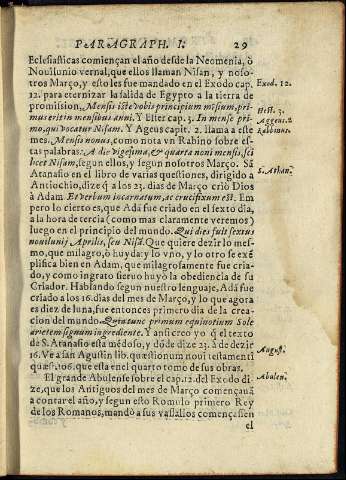 PARAGRAPH. I. 29
Eclesiasticas comiençan el año desde la Neomenia, ò
Novilunio vernal, que ellos llaman Nisan, y noso-
tros Março, y esto les fue mandado en el Exodo cap.
12. para eternizar la salida de Egypto a la tierra de
promission. Mensis iste vobis principium mēsium, pri-
mus erit in mensibus anni. Y Ester cap. 3. In mense pri-
mo, qui vocatur Nisam. Y Ageus capit. 2. llama a este
mes. Mensis nonus, como nota un Rabino sobre es-
tas palabras. A die vigesima, & quarta noni mensis, sci
licet Nisam, segun ellos, y segun nosotros Março. Sā
Atanasio en el libro de varias questiones, dirigido a
Antiochio, dize q̄ a los 23. dias de Março criò Dios
à Adam. Et verbum incarnatum, ac crucifixum est. Em
pero lo cierto es, que Adā fue criado en el sexto dia,
a la hora de tercia (como mas claramente veremos)
luego en el principio del mundo. Qui dies fuit sextus
novilunij Aprilis, seu Nisā. Que quiere dezir lo mes-
mo, que milagro, ò huyda: y lo vno, y lo otro se exē
plifica bien en Adam, que milagrosamente fue cria-
do, y como ingrato siervo huyò la obediencia de su
Criador. Hablando segun nuestro lenguaje, Adā fue
criado a los 16. dias del mes de Março, y lo que agora
es diez de luna, fue entonces primero dia de la crea-
cion del mundo. Quia tunc primum equinotium Sole
arietem signum ingrediente. Y ansi creo yo q̄ el texto
de S. Atanasio esta mēdoso, y dōde dize 23. à de dezir
16. Ve a san Agustin lib. questionum novi testamēti
quæst. 106. que esta en el quarto tomo de sus obras.
El grande Abulense sobre el cap. 12. del Exodo di
ze, que los Antiguos del mes de Março començavā
a contar el año, y segun esto Romulo primero Rey
de los Romanos, mandò a sus vassallos començassen
el
Exod. 12.
Hest. 3.
Aggeus. 2
Rabbinus.
S. Athan.
August.
Abulen.